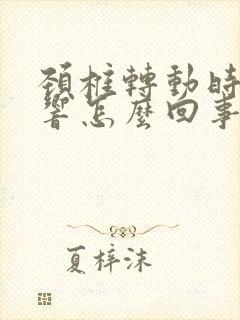 頸椎轉動時
響怎麼回事
夏梓沫